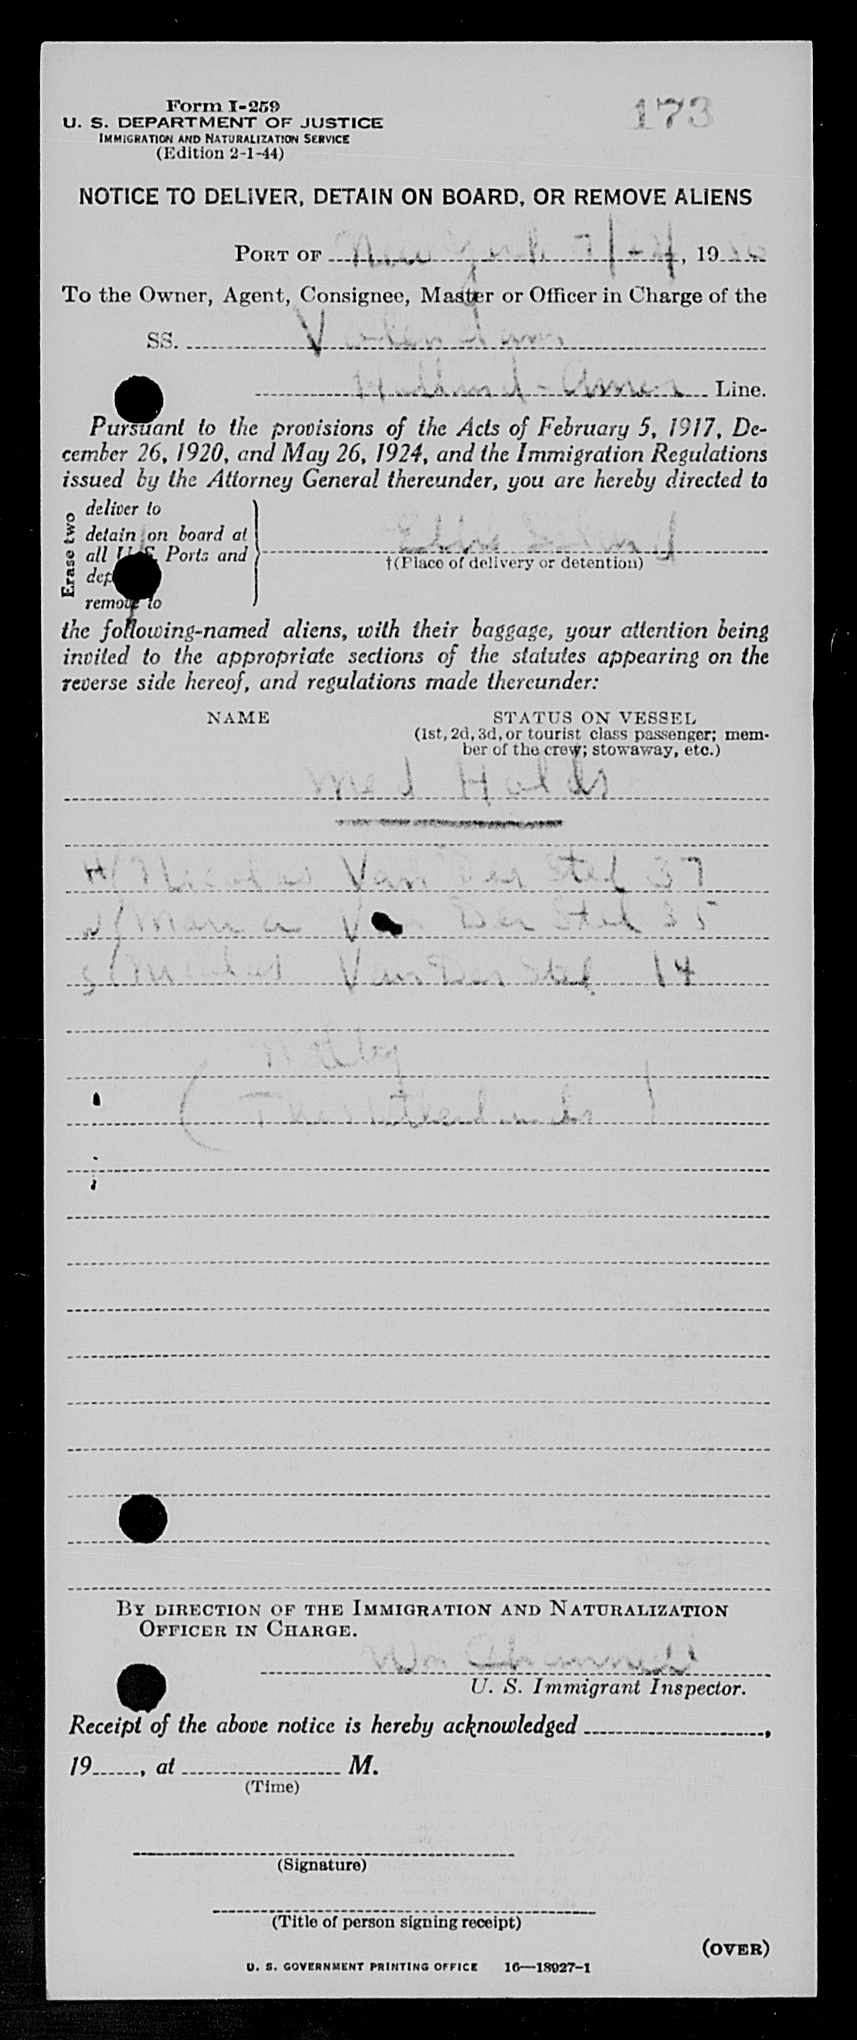 Form I-259
173
U. S. DEPARTMENT OF JUSTICE
IMMIGRATION AND NATURALIZATION SERVICE
(Edition 2-1-44)
NOTICE TO DELIVER, DETAIN ON BOARD, OR REMOVE ALIENS
PORT OF New York , 19
To the Owner, Agent, Consignee, Master or Officer in Charge of the
SS. Volendam
Holland-Amer Line.
Pursuant to the provisions of the Acts of February 5, 1917, De-
cember 26, 1920, and May 26, 1924, and the Immigration Regulations
issued by the Attorney General thereunder, you are hereby directed to
Erase two
deliver to
detain on board at
all U.S. Ports and
dep
remove to
Ellis Island
†(Place of delivery or detention)
the following-named aliens, with their baggage, your attention being
invited to the appropriate sections of the statutes appearing on the
reverse side hereof, and regulations made thereunder:
NAME STATUS ON VESSEL
(1st, 2d, 3d, or tourist class passenger; mem-
ber of the crew; stowaway, etc.)
Med Holds
H/ Nicolas Van Der Stel 37
W/ Maria Van Der Stel 35
S/ Van Der Stel 14
(The Netherlands)
BY DIRECTION OF THE IMMIGRATION AND NATURALIZATION
OFFICER IN CHARGE.
Wm
U. S. Immigrant Inspector.
Receipt of the above notice is hereby acknowledged ,
19 , at M.
(Time)
(Signature)
(Title of person signing receipt)
(OVER)
U. S. GOVERNMENT PRINTING OFFICE 16—18927-1